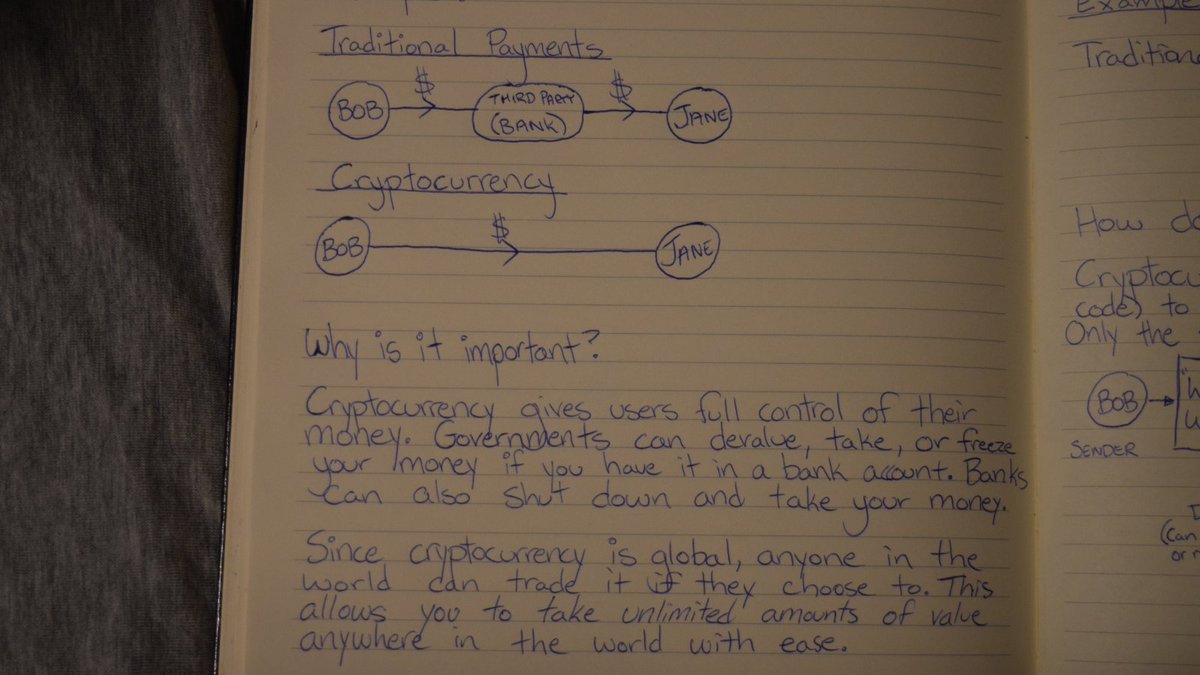 Traditional Payments
$ $
BOB THIRD PARTY JANE
(BANK)
Cryptocurrency
$
BOB JANE
Why is it important?
Cryptocurrency gives users full control of their
money. Governments can devalue, take, or freeze
your money if you have it in a bank account. Banks
can also shut down and take your money.
Since cryptocurrency is global, anyone in the
world can trade it if they choose to. This
allows you to take unlimited amounts of value
anywhere in the world with ease.
Example
Tradition
How do
Cryptocu
code) to
Only the
BOB
SENDER
(Can